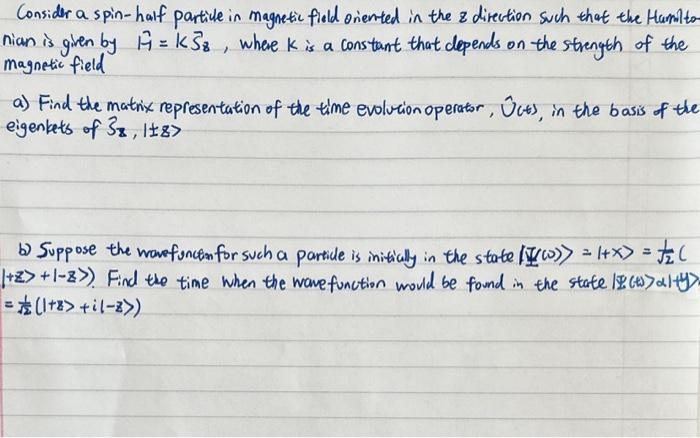 Consider a spin-half particle in magnetic field oriented in the z direction such that the Hamilto-
nian is given by Ĥ = kŜz , where k is a constant that depends on the strength of the
magnetic field
a) Find the matrix representation of the time evolution operator, Û(t), in the basis of the
eigenkets of Ŝz, |±z>
b) Suppose the wavefunction for such a particle is initially in the state |Ψ(0)> = |+x> = 1/√2 (
|+z> + |-z>) Find the time when the wavefunction would be found in the state |Ψ(t)> α |+y>
= 1/√2 (|+z> + i|-z>)